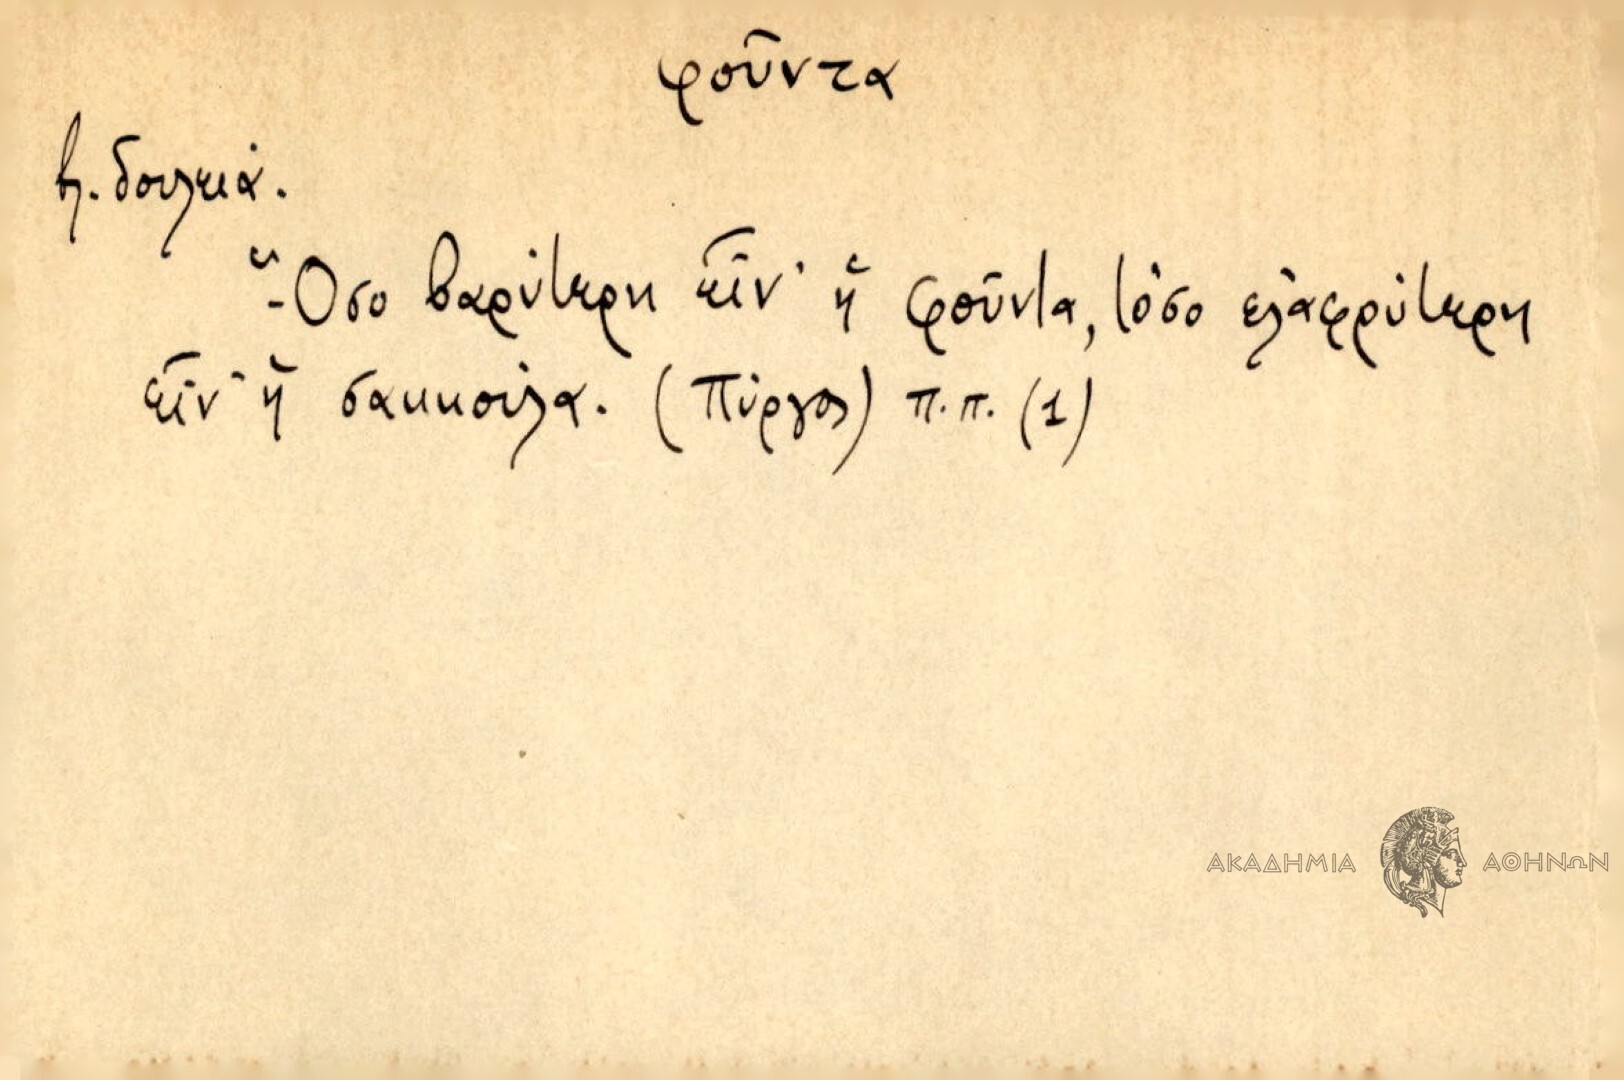 φοῦντα
βλ. δουλειά.
-Ὅσο βαρύτερη εἶν' ἡ φοῦντα, τόσο ἐλαφρύτερη
εἶν' ἡ σακκούλα. (Πύργος) π.π. (1)
ΑΚΑΔΗΜΙΑ ΑΘΗΝΩΝ